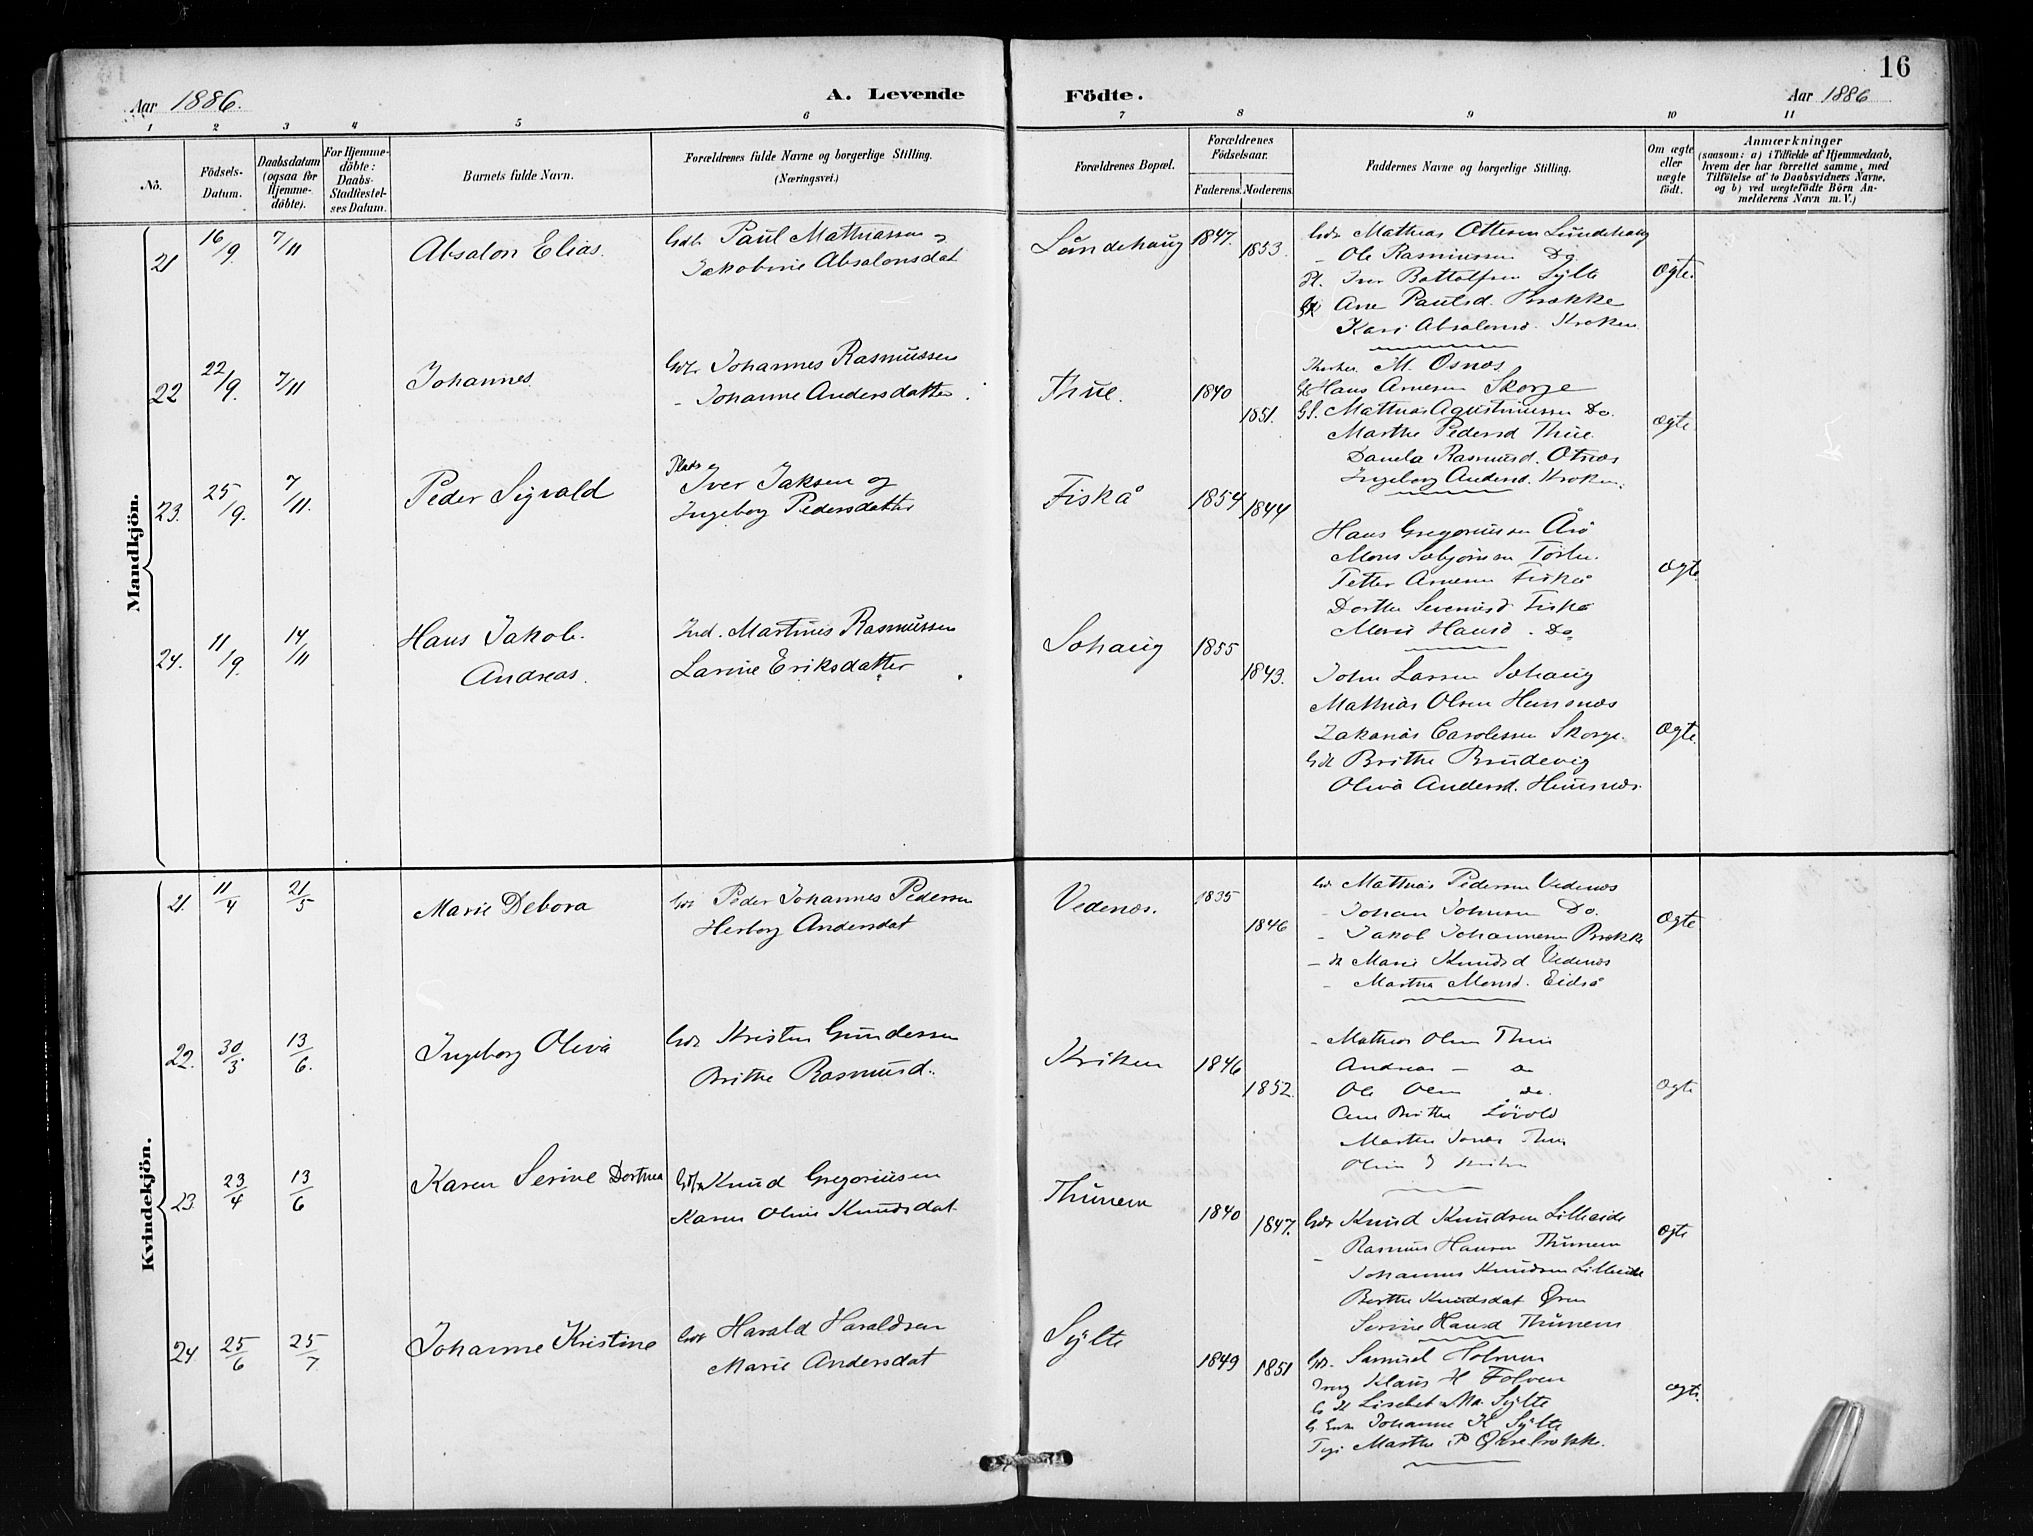 16
Aar 1886.
A. Levende
Födte.
Aar 1886
1 2 3 4 5 6 7 8 9 10 11
No.
Födsels-Datum.
Daabsdatum (ogsaa for Hjemme-döbte).
For Hjemme-döbte: Daabs-Stadfæstel-ses Datum.
Barnets fulde Navn.
Forældrenes fulde Navne og borgerlige Stilling.
(Næringsvei.)
Forældrenes Bopæl.
Forældrenes Födselsaar.
Faderens. Moderens.
Faddernes Navne og borgerlige Stilling.
Om ægte eller uægte födt.
Anmærkninger
(saasom: a) i Tilfælde af Hjemmedaab, hvem der har forrettet samme, med Tilföielse af to Daabsvidners Navne, og b) ved uægtefödte Börn Anmelderens Navn m. V.)
Mandkjön.
21 16/9. 7/11 Absalon Elias.
Paul Mathiassen
Jakobine Absalonsdat
Lundehaug 1847. 1853.
Mathias Ottesen Lundehaug
- Ole Rasmussen Do
Iver Bottolfsen Sylte
Ane Paulsd. Brække
Kari Absalonsd. Kroken
Ægte.
22 22/9. 7/11 Johannes
Johannes Rasmussen
- Johanne Andersdatter.
Thue. 1840 1851.
M. Osnes
Hans Arnesen Skorge
Mathias Do.
Marthe Pedersd Thue.
Rasmusd. Otnes
Ingeborg Andersd. Kroken.
Ægte.
23. 25/9. 7/11. Peder Sigvald
Plads
Iver Jaksen og
Ingeborg Pedersdatter
Fiskå 1854 1844
Hans Gregoriussen Årö
Mons
Petter Arnesen Fiskå
Dorthe Fiskå
Hansd. Do
Ægte
24. 11/9. 14/11 Hans Jakob
Andreas.
Ind. Martinus Rasmussen
Larine Eriksdatter
Sohaug 1855 1843.
John Larsen Sohaug
Mathias Olsen
Zakarias Skorge.
Brithe Brudevig
Oliva Andersd.
Ægte.
Kvindekjön.
21. 11/4 21/5 Marie Debora
Peder Johannes Pedersen
Herborg Andersdat
Vedenæs. 1835 1846
Mathias Pedersen Vedenæs
- Johan Johnsen Do.
- Jakob Johannesen Brække
Marie Knudsd Vedenæs
- Martha Monsd. Eidså
Ægte
22. 30/3. 13/6. Ingeborg Oliva
Kristen Gundersen
Brithe Rasmusd.
Kriken 1846 1852.
- Mathias Olsen Thue
Andreas -
Ole Olsen do.
Ane Brithe Lövold
Marthe Thue
Ægte
23. 23/4 13/6 Karen Serine Dorthea
Knud Gregoriusen
Karen Oline Knudsdat.
Thunem 1840 1847.
Knud Knudsen Lilleeide
- Rasmus Hansen Thunem
Johannes Knudsen Lilleeide
Berthe Knudsdat Øren
Serine Hansd Thunem
Ægte
24 25/6 25/7. Johanne Kristine
Harald Haraldsen
Marie Andersdat
Sylte 1849 1851
Samuel Holmen
Klaus H Folven
Lisebet Sylte
Johanne K Sylte
Marthe P
Ægte.